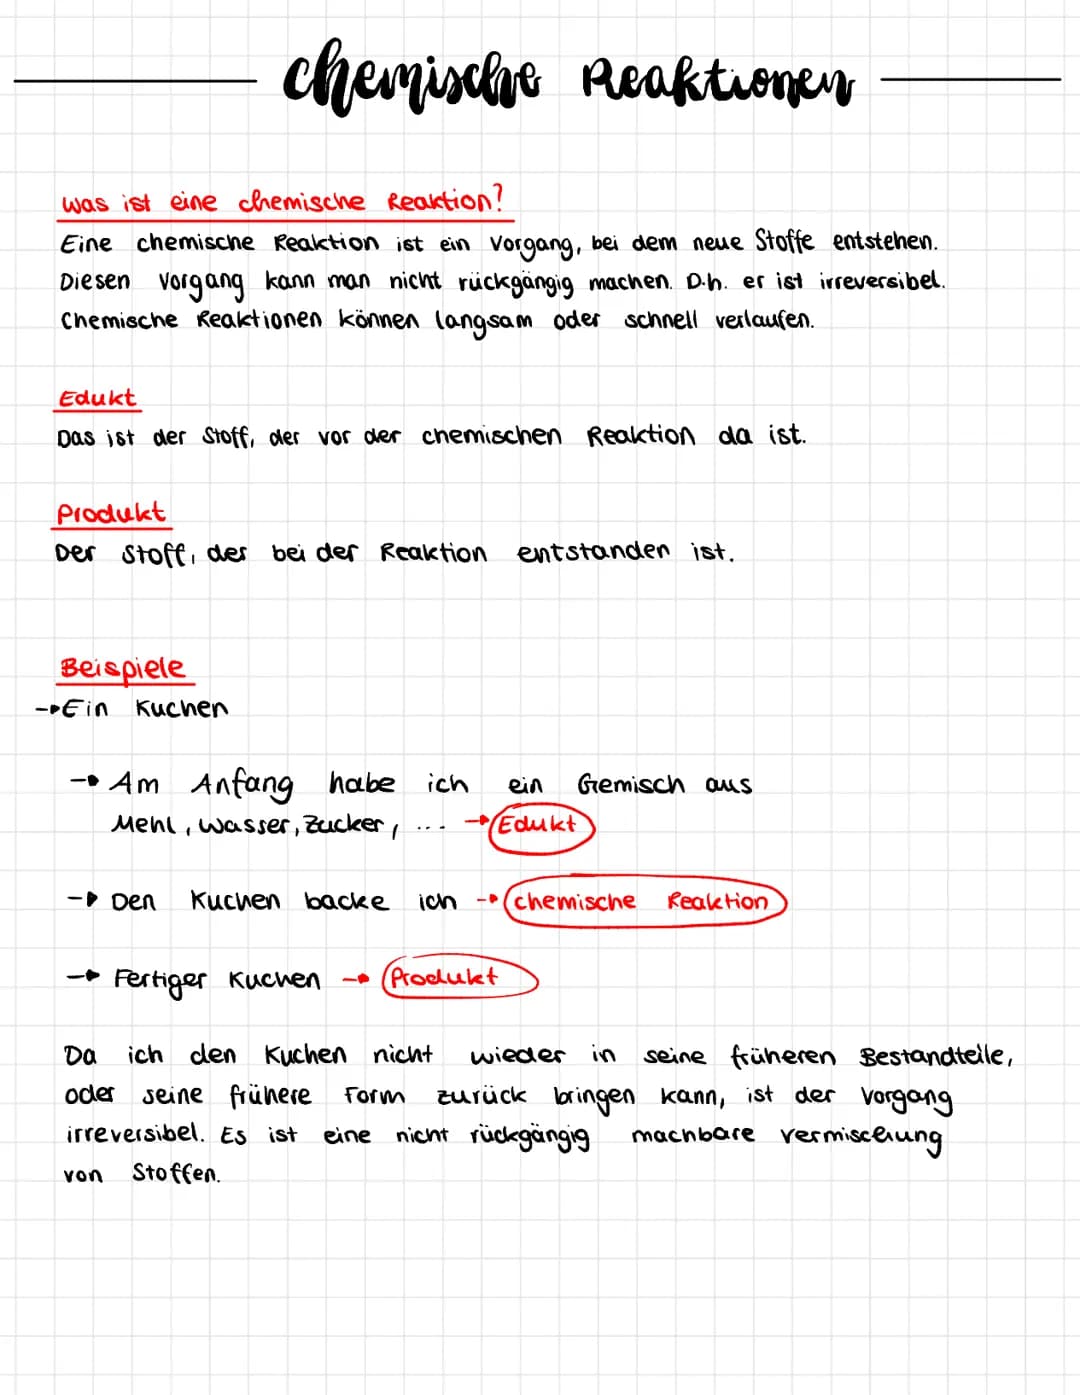 chemische Reaktionen
Was ist eine chemische Reaktion?
Eine chemische Reaktion ist ein Vorgang, bei dem neue Stoffe entstehen.
Diesen Vorgang kann man nicht rückgängig machen. D.h. er ist irreversibel.
Chemische Reaktionen können langsam oder schnell verlaufen.
Edukt
Das ist der Stoff, der vor der chemischen Reaktion da ist.
Produkt
Der Stoff, der bei der Reaktion entstanden ist.
Beispiele
→ Ein Kuchen
→ Am Anfang habe ich ein Gemisch aus
Mehl, Wasser, Zucker, ... → Edukt
→ Den Kuchen backe ich → chemische Reaktion
→ Fertiger Kuchen → Produkt
Da ich den Kuchen nicht wieder in seine früheren Bestandteile,
oder seine frühere Form zurück bringen kann, ist der Vorgang
irreversibel. Es ist eine nicht rückgängig machbare Vermischung
von Stoffen.